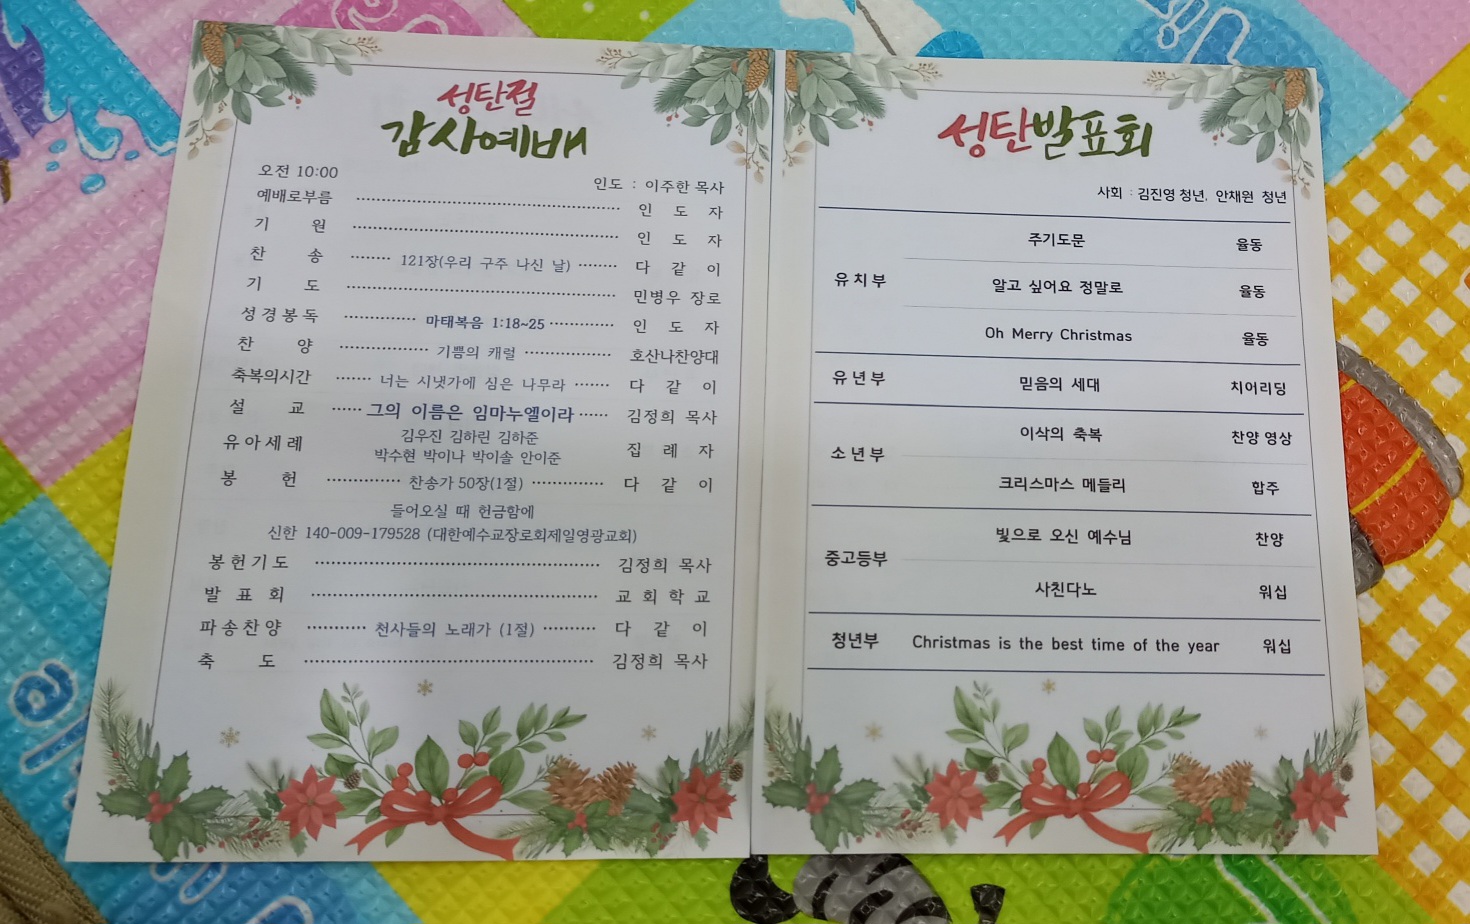 성탄절
감사예배
오전 10:00
인도 : 이주한 목사
예배로부름 ································ 인 도 자
기 원 ································ 인 도 자
찬 송 ······· 121장(우리 구주 나신 날) ······· 다 같 이
기 도 ································ 민병우 장로
성경봉독 ············· 마태복음 1:18~25 ············ 인 도 자
찬 양 ················ 기쁨의 캐럴 ················ 호산나찬양대
축복의시간 ······· 너는 시냇가에 심은 나무라 ······· 다 같 이
설 교 ······ 그의 이름은 임마누엘이라 ······ 김정희 목사
유아세례 김우진 김하린 김하준
박수현 박이나 박이솔 안이준 집 례 자
봉 헌 ·············· 찬송가 50장(1절) ·············· 다 같 이
들어오실 때 헌금함에
신한 140-009-179528 (대한예수교장로회제일영광교회)
봉헌기도 ································ 김정희 목사
발 표 회 ································ 교 회 학 교
파송찬양 ··········· 천사들의 노래가 (1절) ·········· 다 같 이
축 도 ································ 김정희 목사
성탄발표회
사회 : 김진영 청년, 안채원 청년
유치부
주기도문 율동
알고 싶어요 정말로 율동
Oh Merry Christmas 율동
유년부 믿음의 세대 치어리딩
소년부
이삭의 축복 찬양 영상
크리스마스 메들리 합주
중고등부
빛으로 오신 예수님 찬양
사친다노 워십
청년부 Christmas is the best time of the year 워십